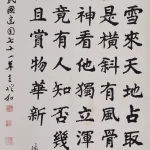 雪來天地占取
是橫斜有風
神看他獨立渾
竟有人知否幾
且賞物華新
民國建國七十一年王愷和